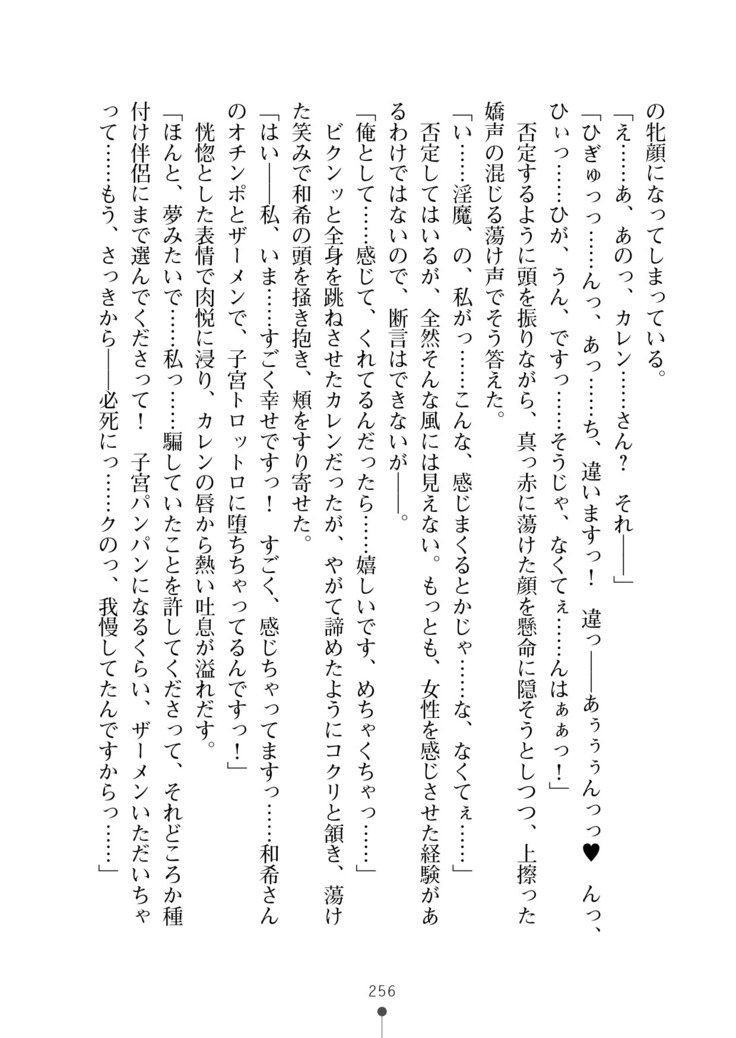 の牝顔になってしまっている。
「え……あ、あのっ、カレン……さん？　それ――」
「ひぎゅっっ……んっ、あっ……ち、違いますっ！　違っ――あぅぅぅんっっ♥　んっ、
ひぃっ……ひが、うん、ですっ……そうじゃ、なくてぇ……んはぁぁっ！」
　否定するように頭を振りながら、真っ赤に蕩けた顔を懸命に隠そうとしつつ、上擦った
嬌声の混じる蕩け声でそう答えた。
「い……淫魔、の、私がっ……こんな、感じまくるとかじゃ……な、なくてぇ……」
　否定してはいるが、全然そんな風には見えない。もっとも、女性を感じさせた経験があ
るわけではないので、断言はできないが――。
「俺として……感じて、くれてるんだったら……嬉しいです、めちゃくちゃっ……」
　ビクンッと全身を跳ねさせたカレンだったが、やがて諦めたようにコクリと頷き、蕩け
た笑みで和希の頭を掻き抱き、頬をすり寄せた。
「はい――私、いま……すごく幸せですっ！　すごく、感じちゃってますっ……和希さん
のオチンポとザーメンで、子宮トロットロに堕ちちゃってるんですっ！」
　恍惚とした表情で肉悦に浸り、カレンの唇から熱い吐息が溢れだす。
「ほんと、夢みたいで……私っ……騙していたことを許してくださって、それどころか種
付け伴侶にまで選んでくださって！　子宮パンパンになるくらい、ザーメンいただいちゃ
って……もう、さっきから――必死にっ……クのっ、我慢してたんですからっ……」
256